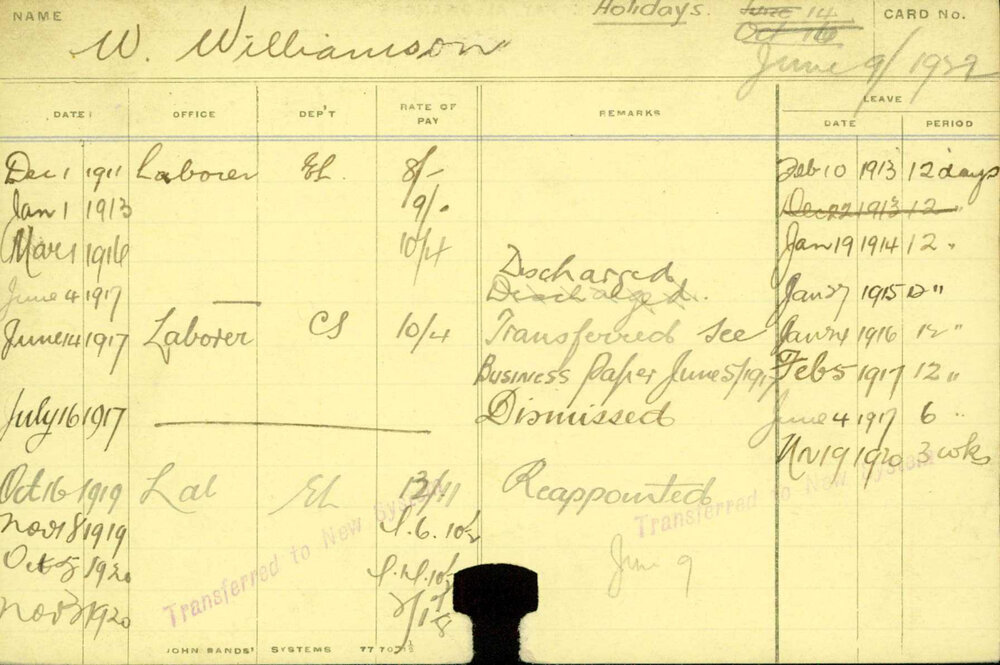 NAME Holidays. June 14 CARD No.
W. Williamson Oct 16
June 9/1922
DATE OFFICE DEP'T RATE OF PAY REMARKS LEAVE
DATE PERIOD
Dec 1 1911 Laborer EL. 8/- Feb 10 1913 12 days
Jan 1 1913 9/- Dec 22 1913 12 "
Mar 1 1916 10/4 Jan 19 1914 12 "
Discharged
June 4 1917 Discharged. Jan 27 1915 12 "
June 14 1917 Laborer CS 10/4 Transferred See Jan 24 1916 12 "
Business Paper June 5/1917 Feb 5 1917 12 "
July 16 1917 Dismissed June 4 1917 6 "
Nov 19 1920 3 wks
Oct 16 1919 Lab EL 12/11 Reappointed
Transferred to New System
Transferred to New System
Nov 18 1919
Oct 5 1920 June 9
Nov 1920
JOHN SANDS' SYSTEMS